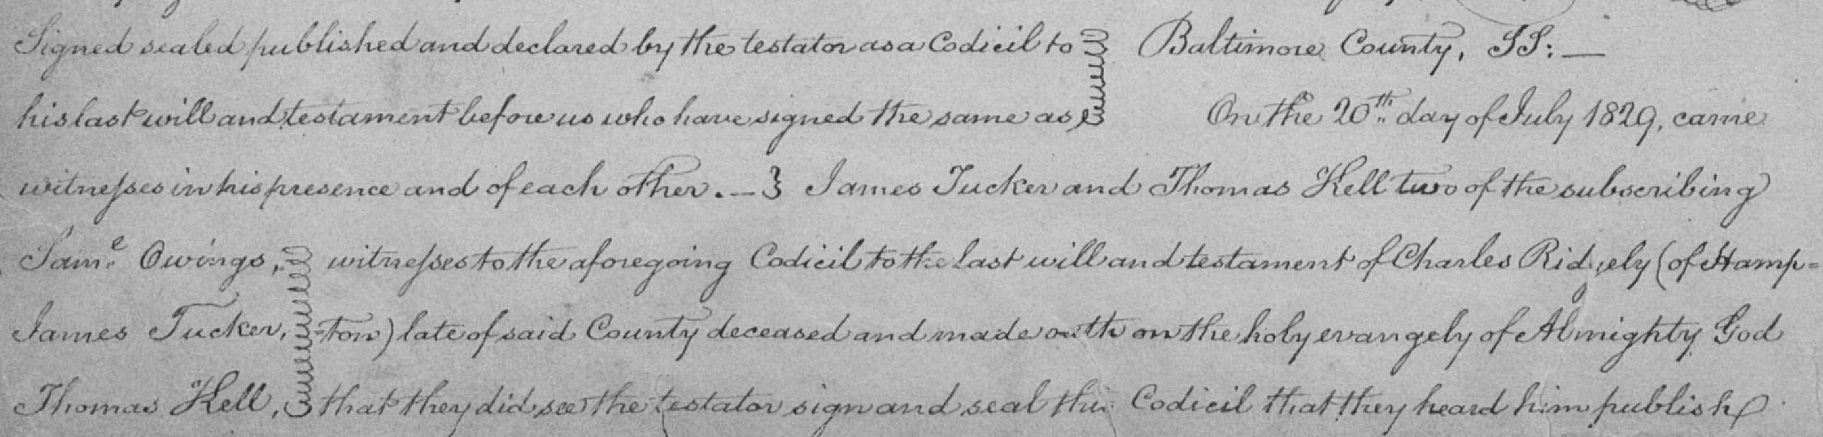 Signed sealed published and declared by the testator as a Codicil to
his last will and testament before us who have signed the same as
witnesses in his presence and of each other. —
Baltimore County, SS: —
On the 20th day of July 1829, came
James Tucker and Thomas Kell two of the subscribing
Saml Owings,
James Tucker,
Thomas Kell,
witnesses to the aforegoing Codicil to the last will and testament of Charles Ridgely (of Hamp=
=ton) late of said County deceased and made oath on the holy evangely of Almighty God
that they did see the testator sign and seal this Codicil that they heard him publish